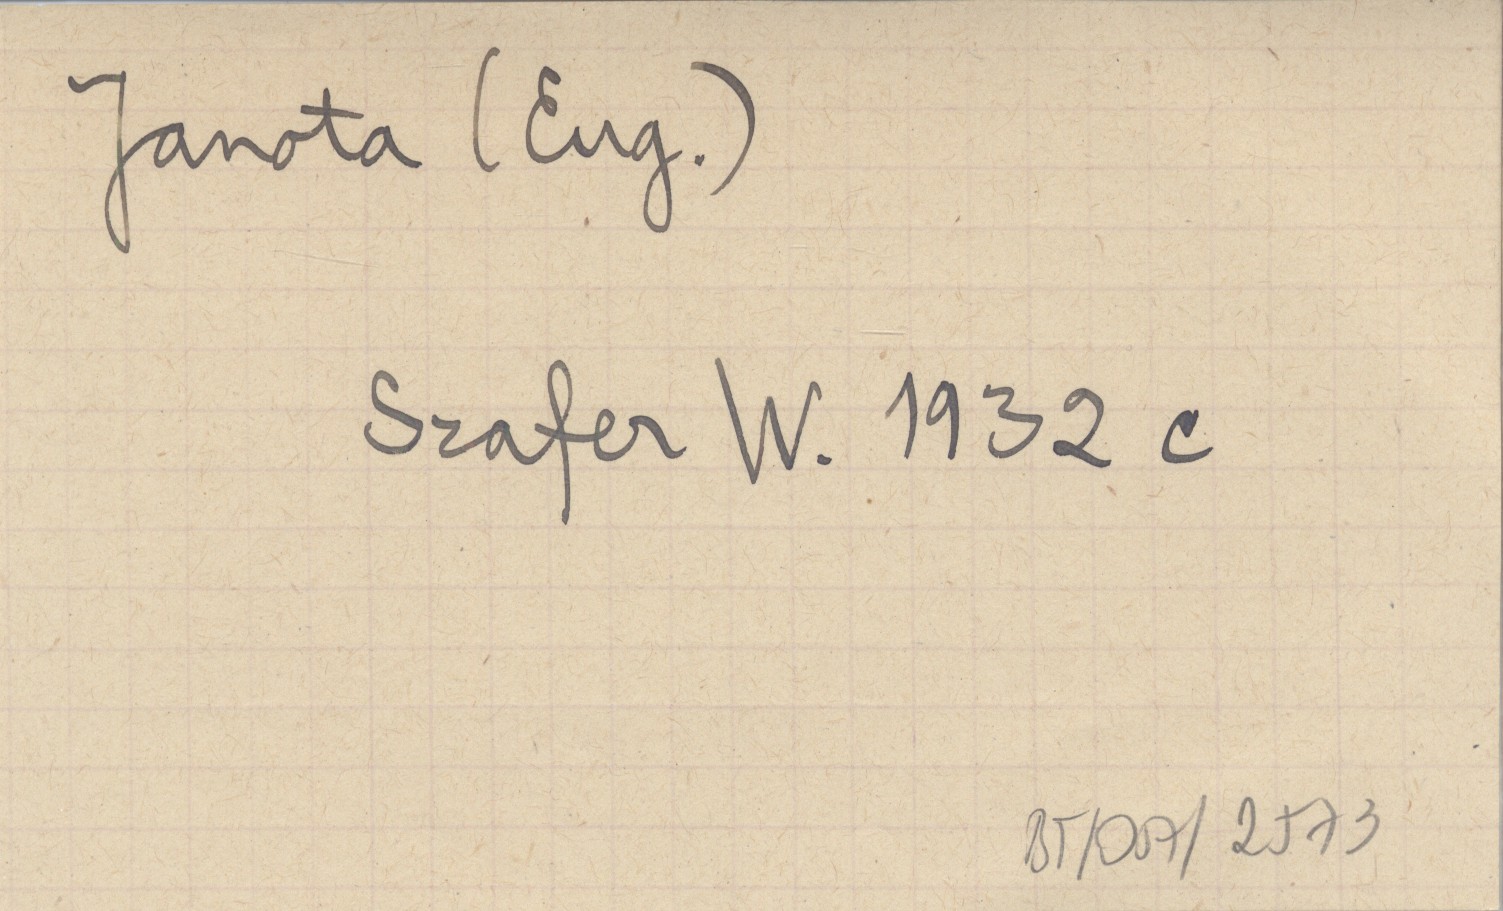 Janota (Eug.)
Szafer W. 1932 c
BT/007/2573